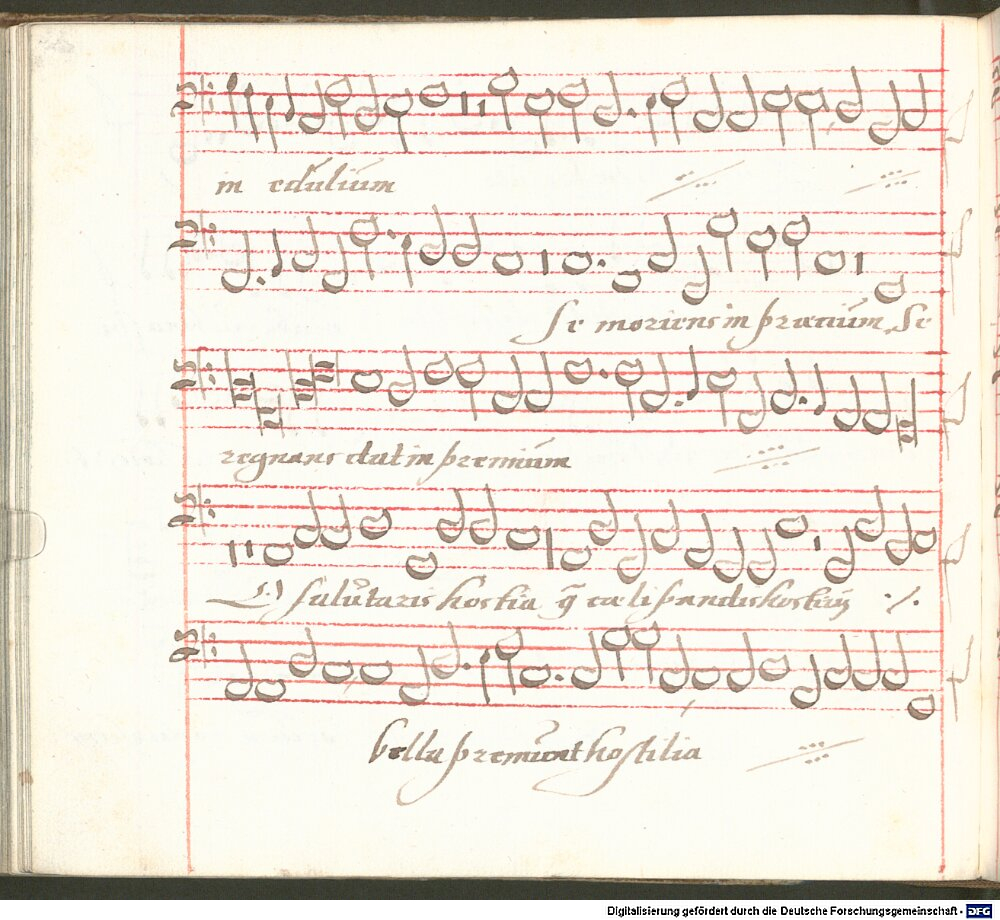 in edulium
Se moriens in præcium, Se
regnans dat in premium
O salutaris hostia q̃ cæli pandis hostiũ ·/.
bella premunt hostilia
Digitalisierung gefördert durch die Deutsche Forschungsgemeinschaft - DFG